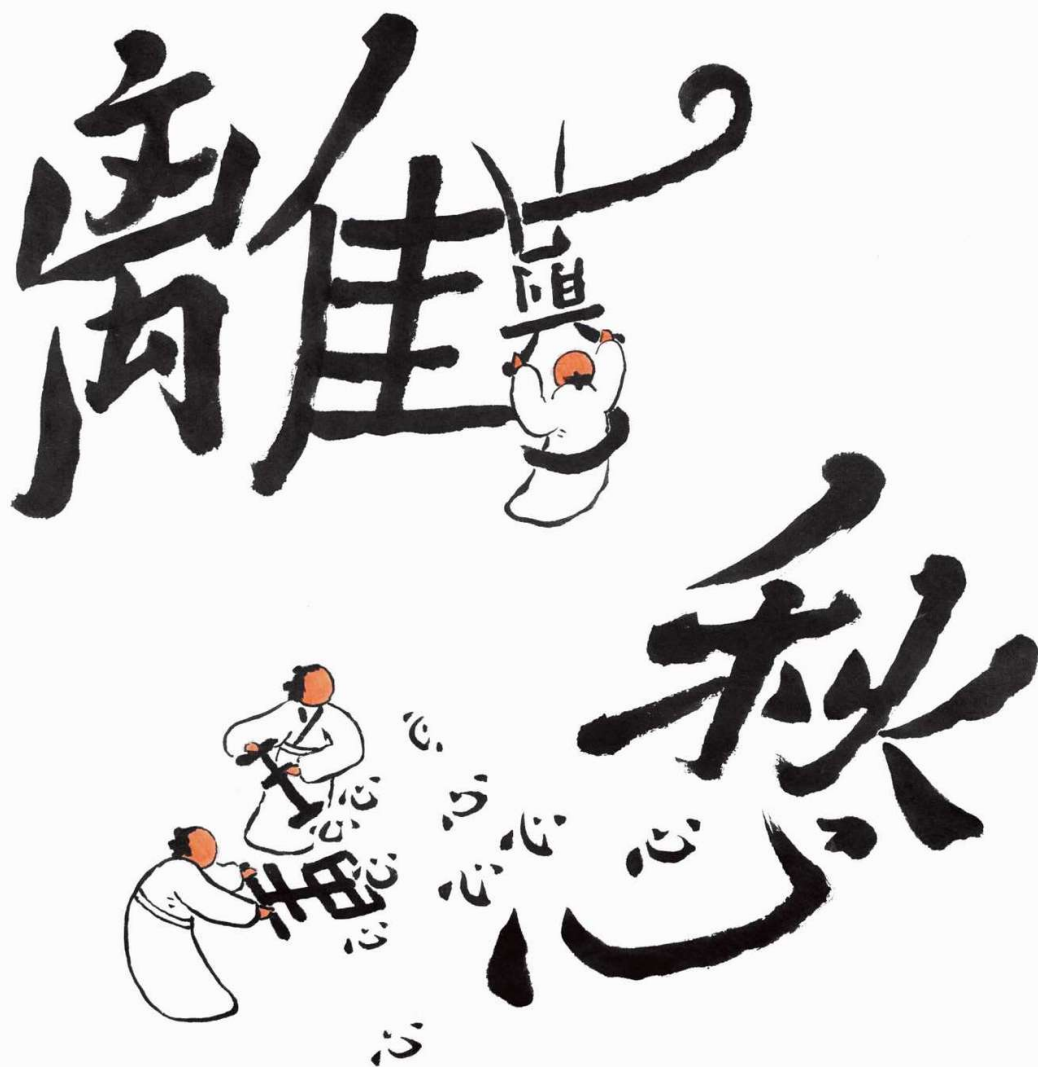 離
愁
心
心
心
心
心
心
心
心
心
心